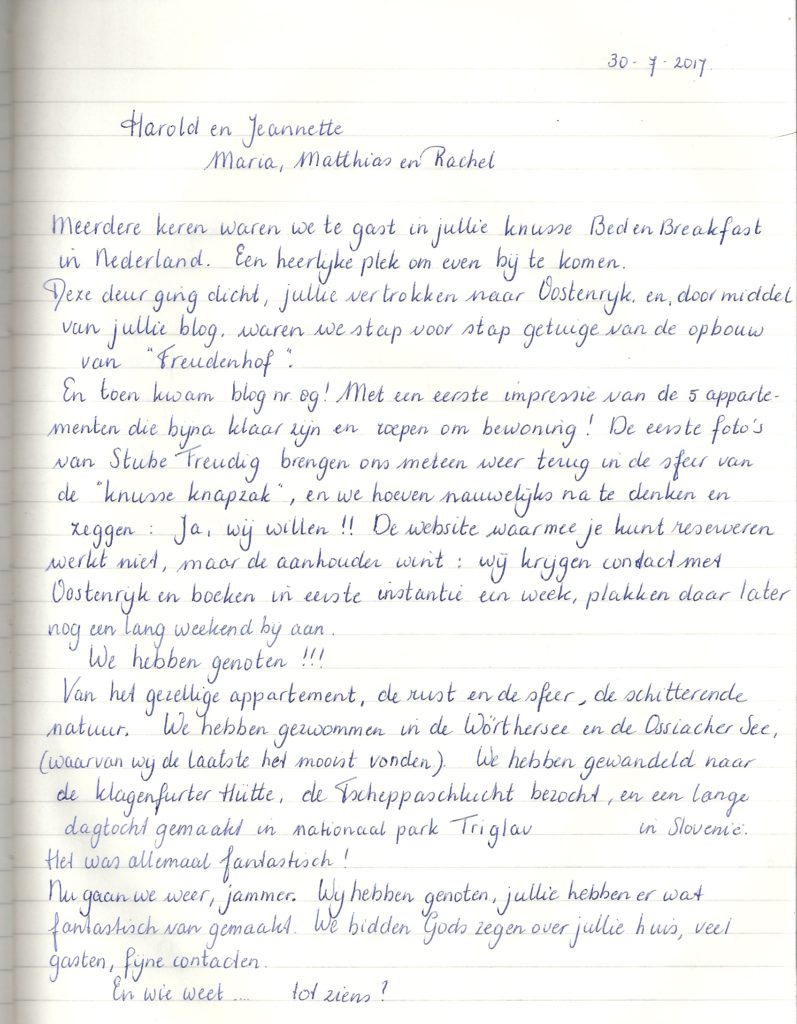 30-7-2017.
Harold en Jeannette
Maria, Matthias en Rachel
Meerdere keren waren we te gast in jullie knusse Bed en Breakfast
in Nederland. Een heerlijke plek om even bij te komen.
Deze deur ging dicht, jullie vertrokken naar Oostenryk, en, door middel
van jullie blog, waren we stap voor stap getuige van de opbouw
van "Freudenhof".
En toen kwam blog nr. 09! Met een eerste impressie van de 5 apparte-
menten die bijna klaar zijn en roepen om bewoning! De eerste foto's
van Stube Freudig brengen ons meteen weer terug in de sfeer van
de "knusse knapzak", en we hoeven nauwelijks na te denken en
zeggen: Ja, wij willen!! De website waarmee je kunt reserveren
werkt niet, maar de aanhouder wint: wij krijgen contact met
Oostenrijk en boeken in eerste instantie een week, plakken daar later
nog een lang weekend bij aan.
We hebben genoten!!!
Van het gezellige appartement, de rust en de sfeer, de schitterende
natuur. We hebben gezwommen in de Wörthersee en de Ossiacher See,
(waarvan wij de laatste het mooist vonden). We hebben gewandeld naar
de Klagenfurter Hütte, de Tscheppaschlucht bezocht, en een lange
dagtocht gemaakt in nationaal park Triglav in Slovenië.
Het was allemaal fantastisch!
Nu gaan we weer, jammer. Wij hebben genoten, jullie hebben er wat
fantastisch van gemaakt. We bidden Gods zegen over jullie huis, veel
gasten, fijne contacten.
En wie weet.... tot ziens?